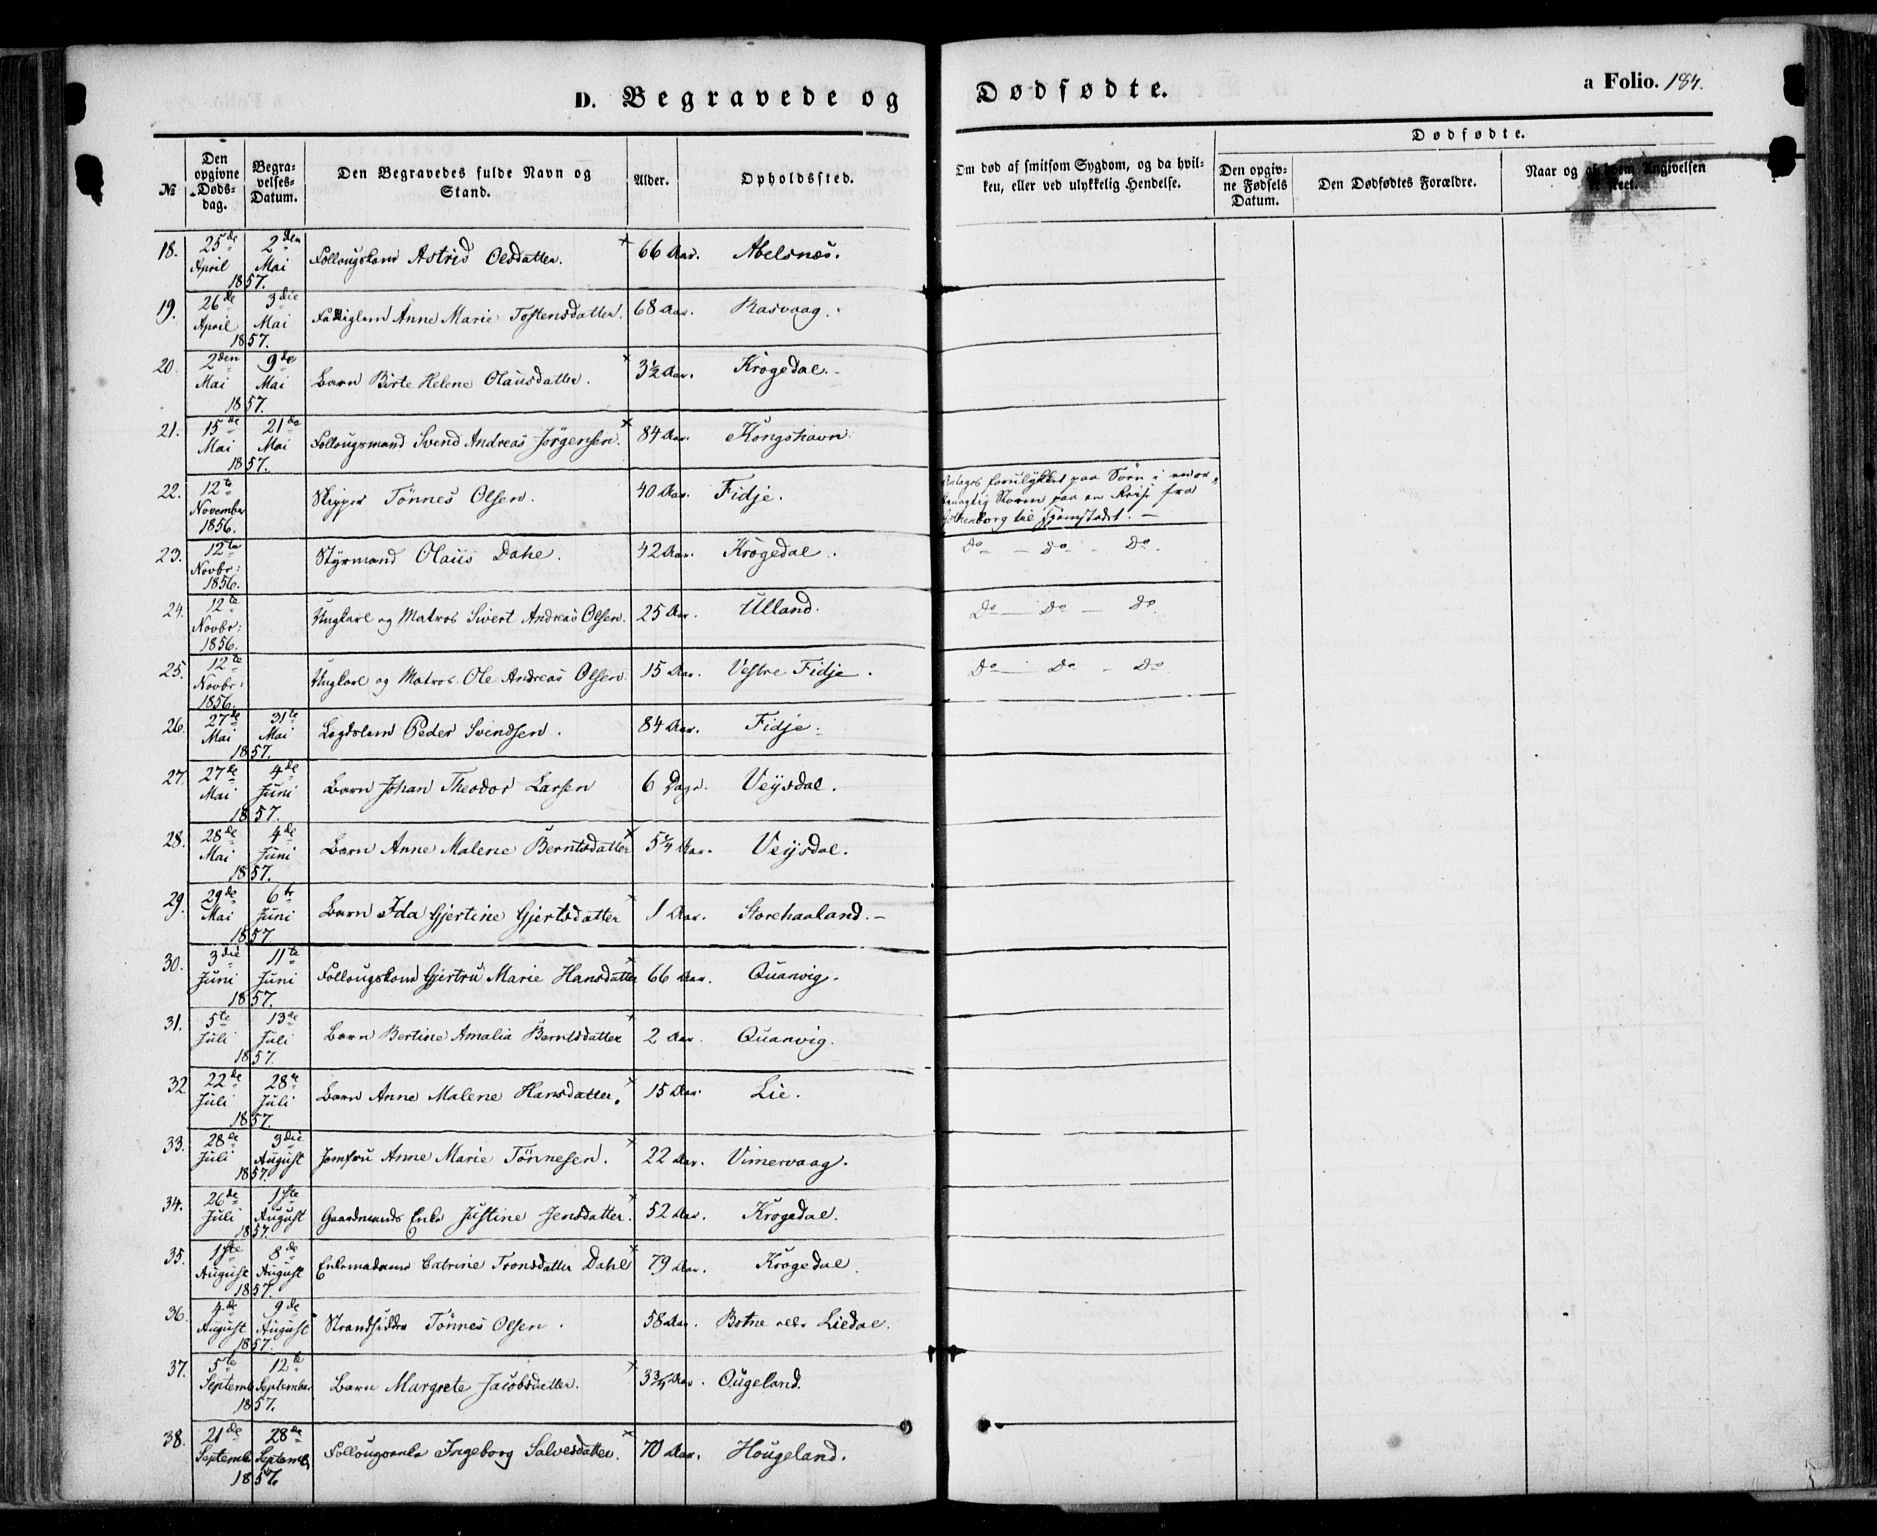 D. Begravede og Dødfødte.
a Folio. 184.
№
Den opgivne Døds-dag.
Begra-velses-Datum.
Den Begravedes fulde Navn og Stand.
Alder.
Opholdssted.
Om død af smitsom Sygdom, og da hvil-ken, eller ved ulykkelig Hendelse.
Dødfødte.
Den opgiv-ne Fødsels Datum.
Den Dødfødtes Forældre.
Naar og af hvem Angivelsen skeet.
18. 25de April 2den Mai 1857. Follougskone Astrid Olsdatter. 66 Aar. Abelsnæs.
19. 26de April 3die Mai 1857. Fattiglem Anne Marie Tostensdatter. 68 Aar. Rasvaag.
20. 2den Mai 9de Mai 1857. Barn Birte Helene Olausdatter. 3½ Aar. Krøgedal.
21. 15de Mai 21de Mai 1857. Follougsmand Svend Andreas Jørgensen. 84 Aar. Kongshavn.
22. 12te November 1856. Skipper Tønnes Olsen. 40 Aar. Fidje. Antages forulykket paa Søen i en or-kanagtig Storm paa en Reise fra Gothenborg til Hjemstedet.
23. 12te Novbr: 1856. Styrmand Olaus Dahe. 42 Aar. Krøgedal. Do Do Do.
24. 12te Novbr: 1856. Ungkarl og Matros Sivert Andreas Olsen. 25 Aar. Ulland. Do Do Do
25. 12te Novbr: 1856. Ungkarl og Matros Ole Andreas Olsen. 15 Aar. Vestre Fidje. Do Do Do
26. 27de Mai 31te Mai 1857. Lægdslem Peder Svendsen. 84 Aar. Fidje.
27. 27de Mai 4de Juni 1857. Barn Johan Theodor Larsen 6 Dage. Veisdal.
28. 28de Mai 4de Juni 1857. Barn Anne Malene Berntsdatter 5¼ Aar. Veisdal.
29. 29de Mai 6te Juni 1857 Barn Ida Gjertine Gjertsdatter 1 Aar. Storehaaland.
30. 3die Juni 11te Juni 1857. Follougskone Gjertru Marie Hansdatter 66 Aar. Quanvig.
31. 5te Juli 13de Juli 1857. Barn Bertine Amalia Berntsdatter 2 Aar. Quanvig.
32 22de Juli 28de Juli 1857. Barn Anne Malene Hansdatter. 15 Aar. Lie.
33. 28de Juli 3die August 1857. Jomfru Anne Marie Tønnesen. 22 Aar. Vimervaag.
34. 26de Juli 1ste August 1857. Gaardmands Enke Justine Jensdatter. 52 Aar. Krøgedal.
35. 1ste August 8de August 1857. Enkemadame Catrine Tronsdatter Dahl 79 Aar. Krøgedal.
36. 4de August 9de August 1857. Strandsidder Tønnes Olsen. 58 Aar. Botne eller Liedal.
37. 5te Septemb 12te September 1857. Barn Margrete Jacobsdatter. 3¾ Aar. Ougeland.
38. 21de Septemb 28de Septemb 1857. Follougsenke Ingeborg Salvesdatter. 70 Aar. Hougeland.